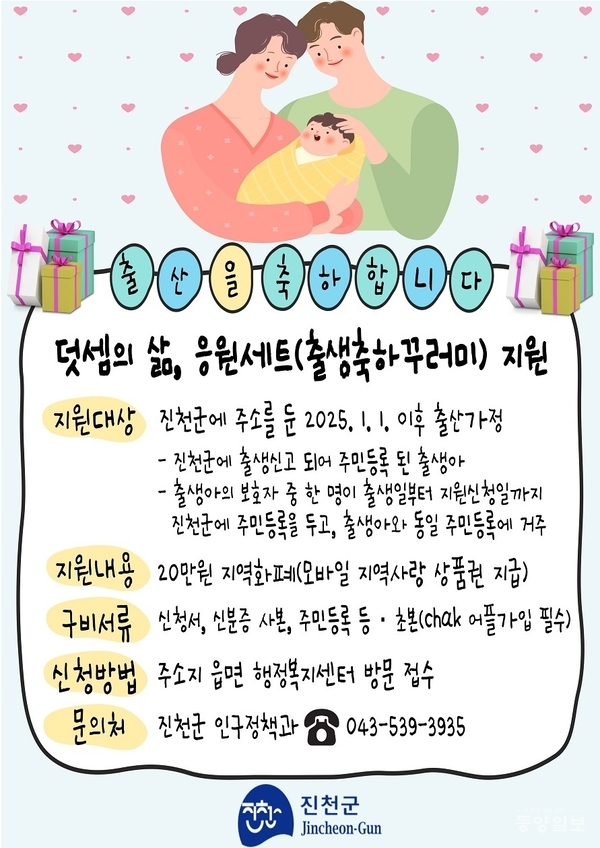 출산을축하합니다
덧셈의 삶, 응원세트(출생축하꾸러미) 지원
지원대상 진천군에 주소를 둔 2025. 1. 1. 이후 출산가정
- 진천군에 출생신고 되어 주민등록 된 출생아
- 출생아의 보호자 중 한 명이 출생일부터 지원신청일까지
진천군에 주민등록을 두고, 출생아와 동일 주민등록에 거주
지원내용 20만원 지역화폐(모바일 지역사랑 상품권 지급)
구비서류 신청서, 신분증 사본, 주민등록 등·초본(chak 어플가입 필수)
신청방법 주소지 읍면 행정복지센터 방문 접수
문의처 진천군 인구정책과 043-539-3935
진천
진천군
Jincheon-Gun
동양일보